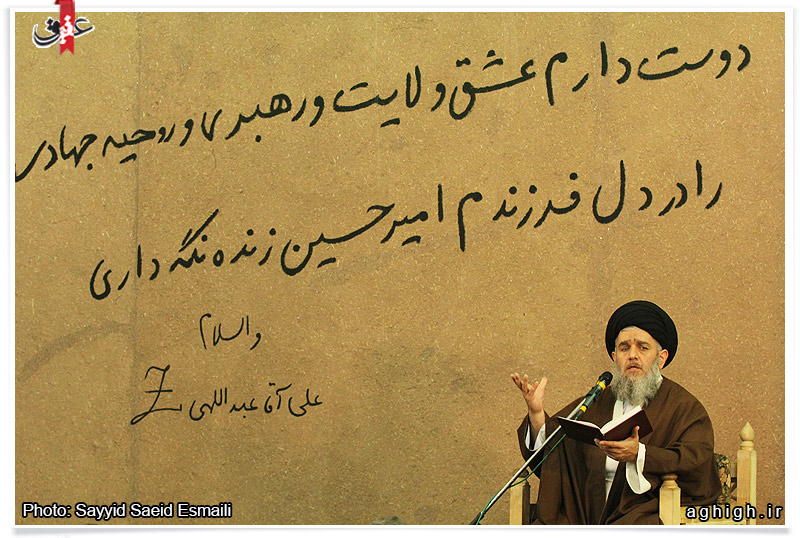 عقیق
دوست دارم عشق ولایت و رهبری و روحیه جهادی
را در دل فرزندم امیرحسین زنده نگه داری
والسلام
علی آقا عبداللهی
Photo: Sayyid Saeid Esmaili
aghigh.ir